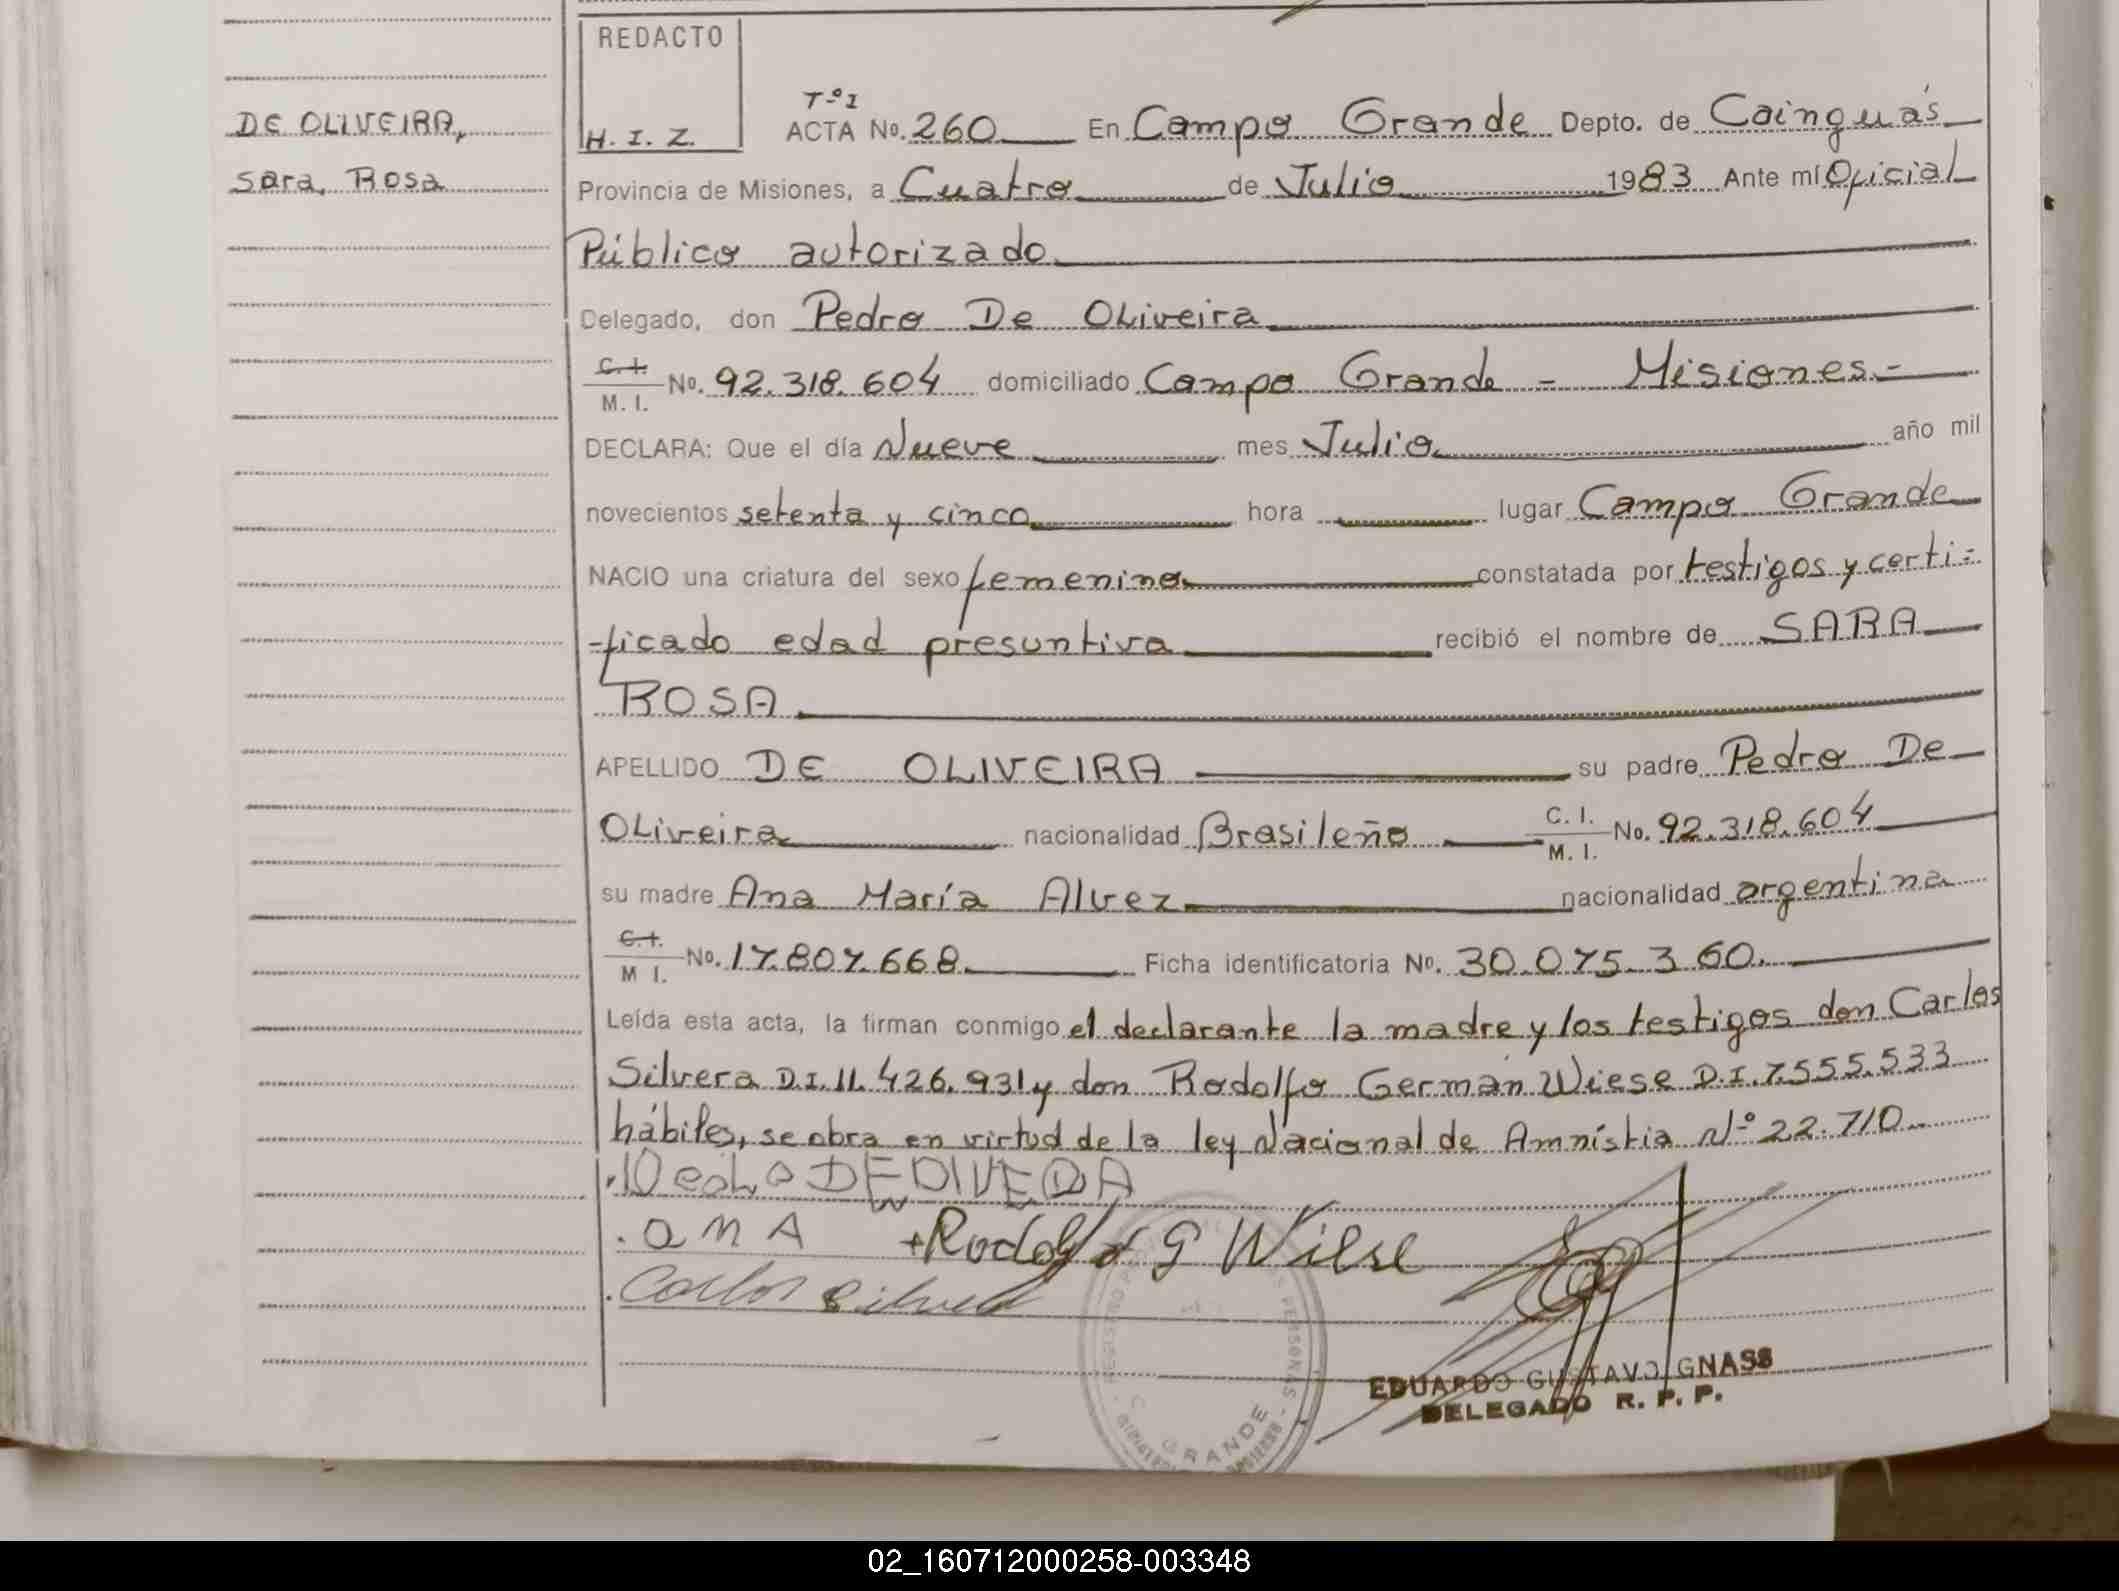 REDACTO
H. I. Z.
DE OLIVEIRA,
Sara, Rosa
Tº I
ACTA No. 260 En Campo Grande Depto. de Cainguás
Provincia de Misiones, a Cuatro de Julio 1983 Ante mí Oficial
Público autorizado
Delegado, don Pedro De Oliveira
C. I.
M. I. No. 92.318.604 domiciliado Campo Grande - Misiones.-
DECLARA: Que el día Nueve mes Julio año mil
novecientos setenta y cinco hora lugar Campo Grande
NACIO una criatura del sexo femenino constatada por testigos y certi=
=ficado edad presuntiva recibió el nombre de SARA
ROSA
APELLIDO DE OLIVEIRA su padre Pedro De
Oliveira nacionalidad Brasileño C. I.
M. I. No. 92.318.604
su madre Ana María Alvez nacionalidad argentina
C. I.
M I. No. 17.807.668 Ficha identificatoria No. 30.075.360.
Leída esta acta, la firman conmigo el declarante la madre y los testigos don Carlos
Silvera D.I. 11.426.931 y don Rodolfo German Wiese D.I. 7.555.533
hábiles, se obra en virtud de la ley Nacional de Amnistia Nº 22.710
ANA +Rodolfo G Wiese
Carlos Silvera
GRANDE
EDUARDO GUSTAVO GNASS
DELEGADO R. P. P.
02_160712000258-003348